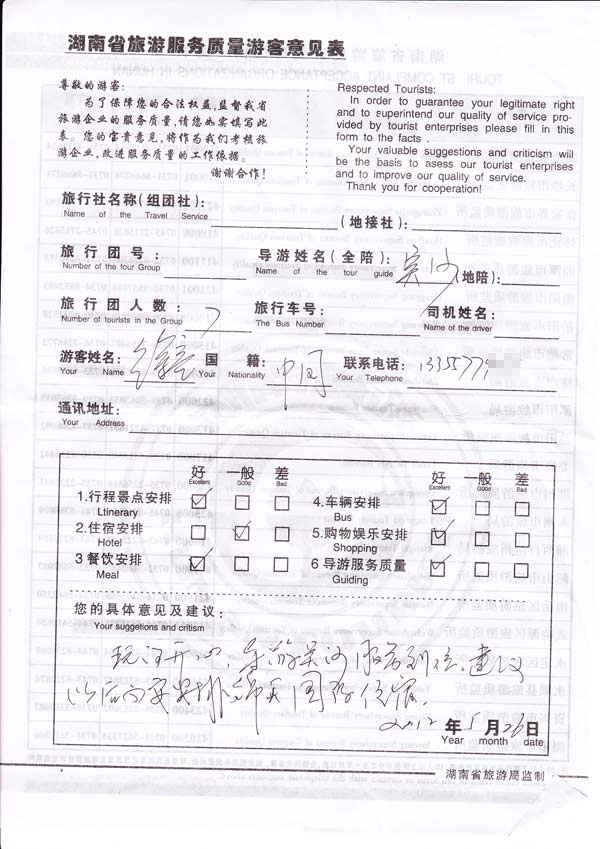 湖南省旅游服务质量游客意见表
尊敬的游客:
为了保障您的合法权益,监督我省
旅游企业的服务质量,请您如实填写此
表。您的宝贵意见,将作为我们考核旅
游企业,改进服务质量的工作依据。
谢谢合作!
Respected Tourists:
In order to guarantee your legitimate right
and to superintend our quality of service pro-
vided by tourist enterprises please fill in this
form to the facts .
Your valuable suggestions and criticism will
be the basis to asess our tourist enterprises
and to improve our quality of service.
Thank you for cooperation!
旅行社名称(组团社): (地接社):
Name of the Travel Service
旅行团号: 导游姓名(全陪): 吴沙 (地陪):
Number of the tour Group Name of the tour guide
旅行团人数: 7 旅行车号: 司机姓名:
Number of tourists in the Group The Bus Number Name of the driver
游客姓名: 国籍: 中国 联系电话: 13355779
Your Name Your Nationality Your Telephone
通讯地址:
Your Address
好 一般 差 好 一般 差
Excellent Good Bad Excellent Good Bad
1.行程景点安排 4.车辆安排
Ltinerary Bus
2.住宿安排 5.购物娱乐安排
Hotel Shopping
3 餐饮安排 6 导游服务质量
Meal Guiding
您的具体意见及建议:
Your suggetions and critism
玩得开心,导游吴沙服务到位.建议
以后不要安排
2012 年 5 月 26 日
Year month date
湖南省旅游局监制